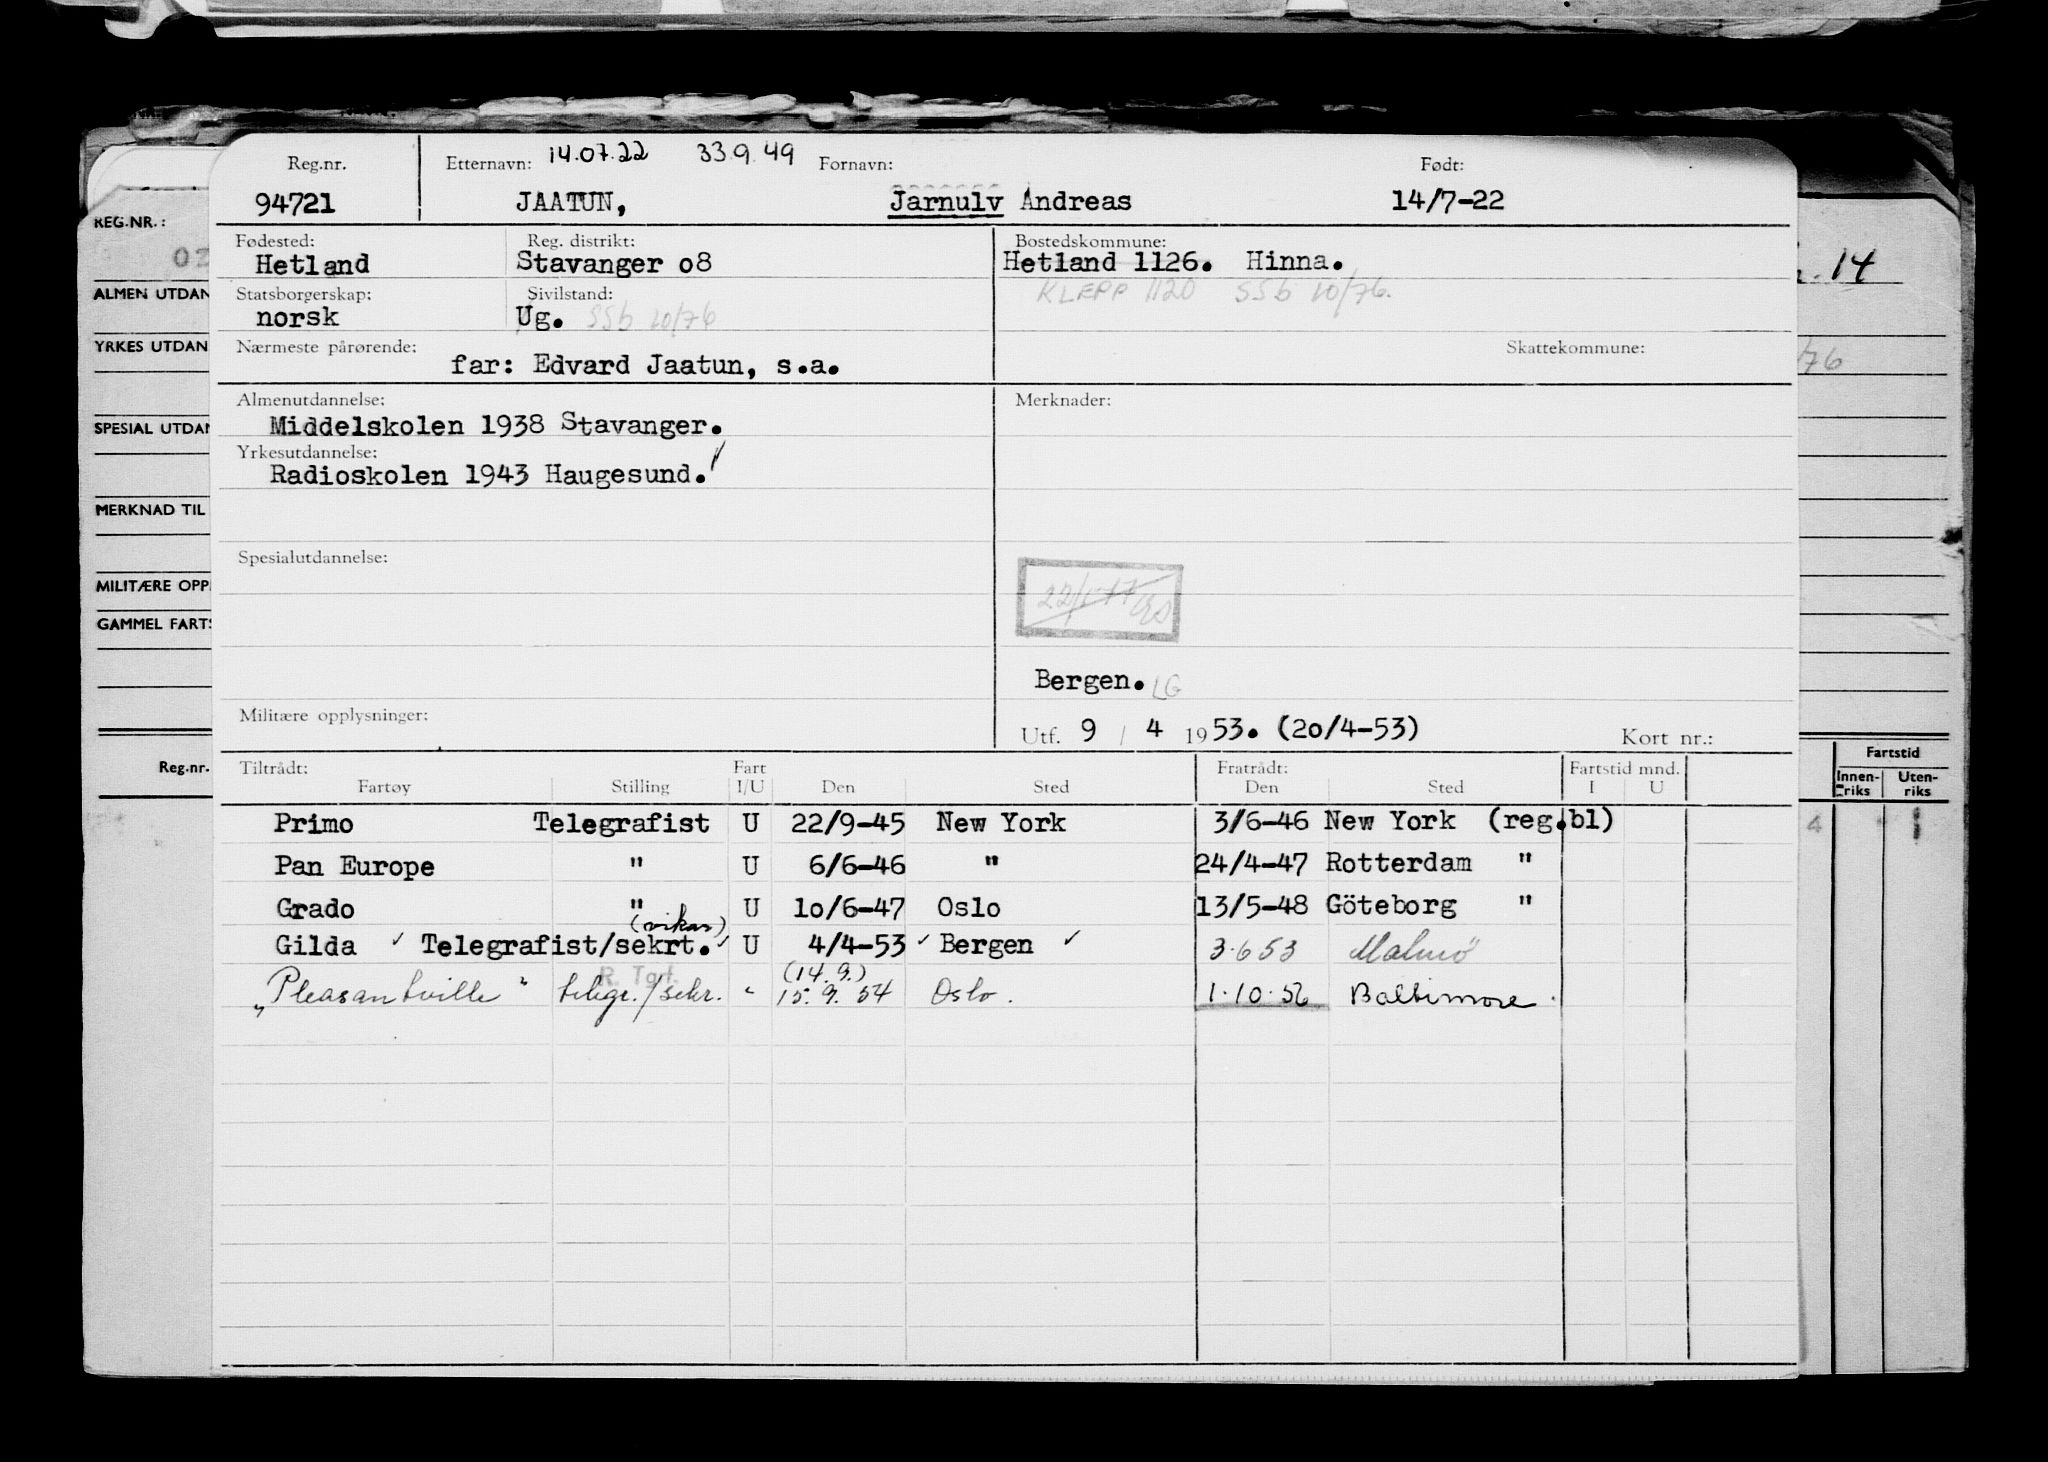 Reg.nr. Etternavn: 14.07.22 33.9.49 Fornavn: Født:
94721 JAATUN, Jarnulv Andreas 14/7-22
Fødested: Reg. distrikt: Bostedskommune:
Hetland Stavanger o8 Hetland 1126. Hinna.
KLEPP 1120 SSb 10/76.
Statsborgerskap: Sivilstand:
norsk Ug. SSb 10/76
Nærmeste pårørende: Skattekommune:
far: Edvard Jaatun, s.a.
Almenutdannelse: Merknader:
Middelskolen 1938 Stavanger.
Yrkesutdannelse:
Radioskolen 1943 Haugesund.
Spesialutdannelse:
Bergen. LG
Militære opplysninger:
Utf. 9 / 4 1953. (20/4-53) Kort nr.:
Tiltrådt: Fart Fratrådt: Fartstid mnd.
Fartøy Stilling I/U Den Sted Den Sted I U
Primo Telegrafist U 22/9-45 New York 3/6-46 New York (reg.bl)
Pan Europe " U 6/6-46 " 24/4-47 Rotterdam "
Grado " U 1o/6-47 Oslo 13/5-48 Göteborg "
(vikar)
Gilda ✓ Telegrafist/sekrt. ✓ U 4/4-53 ✓ Bergen ✓ 3.6 53 Malmö
R. Tgf. (14.9.)
„Pleasantville" telegr./sekr. " 15.9.54 Oslo. 1.10.56 Baltimore.
REG.NR.:
02
ALMEN UTDAN
YRKES UTDAN
SPESIAL UTDAN
MERKNAD TIL
MILITÆRE OPP
GAMMEL FARTS
Reg.nr.
14
/76
Fartstid
Innen-riks Uten-riks
4 1